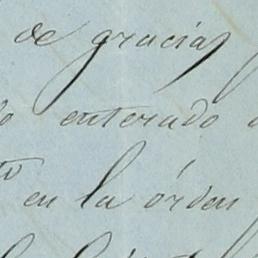 de gracias
enterado
en la órden